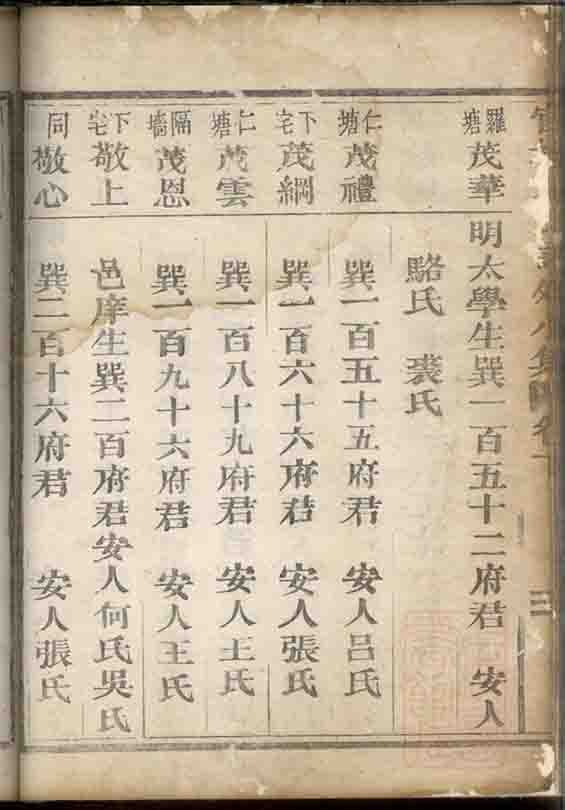 羅塘 茂華 明太學生巽一百五十二府君 安人
駱氏 裘氏
仁塘 茂禮 巽一百五十五府君 安人呂氏
下宅 茂綱 巽一百六十六府君 安人張氏
仁塘 茂雲 巽一百八十九府君 安人王氏
隔墻 茂恩 巽一百九十六府君 安人王氏
下宅 敬上 邑庠生巽二百府君安人何氏吳氏
同 敬心 巽二百十六府君 安人張氏